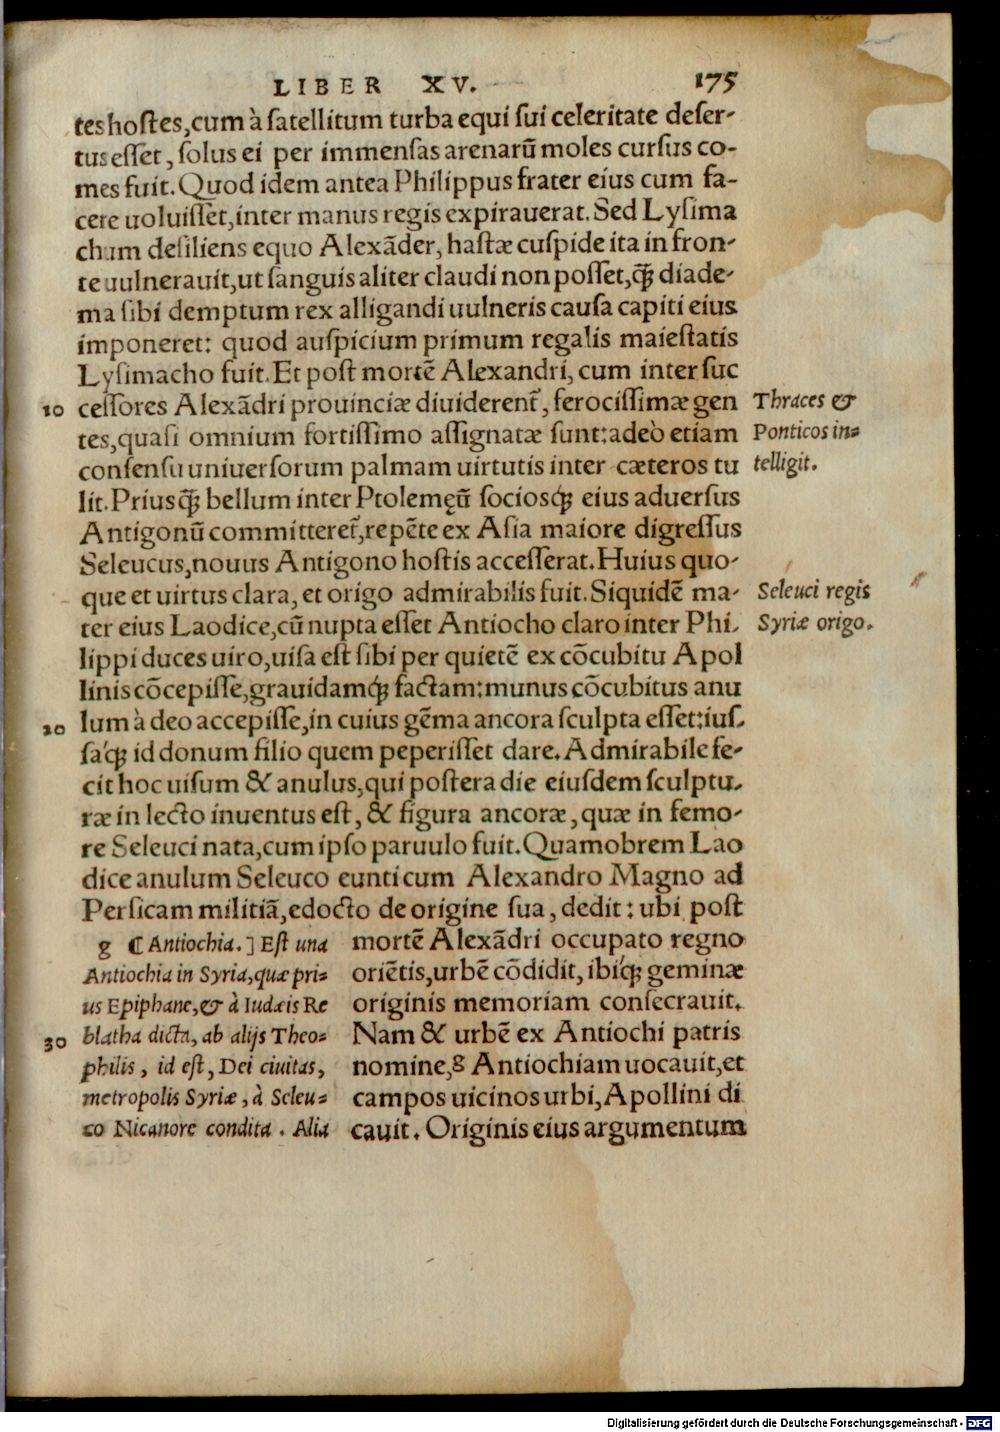 LIBER XV. 175
tes hoſtes, cum à ſatellitum turba equi ſui celeritate deſer-
tus eſſet, ſolus ei per immenſas arenarũ moles curſus co-
mes fuit. Quod idem antea Philippus frater eius cum fa-
cere uoluiſſet, inter manus regis expirauerat. Sed Lyſima
chum deſiliens equo Alexãder, haſtæ cuſpide ita in fron-
te uulnerauit, ut ſanguis aliter claudi non poſſet, q̃ᷓ diade-
ma ſibi demptum rex alligandi uulneris cauſa capiti eius
imponeret: quod auſpicium primum regalis maieſtatis
Lyſimacho fuit. Et poſt mortẽ Alexandri, cum inter ſuc
10 ceſſores Alexãdri prouinciæ diuiderent᷑, ferociſſimæ gen
tes, quaſi omnium fortiſſimo aſſignatæ ſunt: adeò etiam
conſenſu uniuerſorum palmam uirtutis inter cæteros tu
lit. Priusq̃ᷓ bellum inter Ptolemęũ ſociosq́ꝫ eius aduerſus
Antigonũ committeret᷑, repẽte ex Aſia maiore digreſſus
Seleucus, nouus Antigono hoſtis acceſſerat. Huius quo-
que et uirtus clara, et origo admirabilis fuit. Siquidẽ ma-
ter eius Laodice, cũ nupta eſſet Antiocho claro inter Phi-
lippi duces uiro, uiſa eſt ſibi per quietẽ ex cõcubitu Apol
linis cõcepiſſe, grauidamq́ꝫ factam: munus cõcubitus anu
20 lum à deo accepiſſe, in cuius gẽma ancora ſculpta eſſet: iuſ-
ſaq́ꝫ id donum filio quem peperiſſet dare. Admirabile fe-
cit hoc uiſum & anulus, qui poſtera die eiuſdem ſculptu-
ræ in lecto inuentus eſt, & figura ancoræ, quæ in femo-
re Seleuci nata, cum ipſo paruulo fuit. Quamobrem Lao
dice anulum Seleuco eunti cum Alexandro Magno ad
Perſicam militiã, edocto de origine ſua, dedit: ubi poſt
mortẽ Alexãdri occupato regno
oriẽtis, urbẽ cõdidit, ibiq́ꝫ geminæ
originis memoriam conſecrauit.
Nam & urbẽ ex Antiochi patris
nomine, g Antiochiam uocauit, et
campos uicinos urbi, Apollini di
cauit. Originis eius argumentum
g ⁌ Antiochia.] Eſt una
Antiochia in Syria, quæ pri-
us Epiphane, & à Iudæis Re
30 blatha dicta, ab alijs Theo-
philis, id eſt, Dei ciuitas,
metropolis Syriæ, à Seleu-
co Nicanore condita. Alia
Thraces &
Ponticos in-
telligit.
Seleuci regis
Syriæ origo.
Digitalisierung gefördert durch die Deutsche Forschungsgemeinschaft - DFG